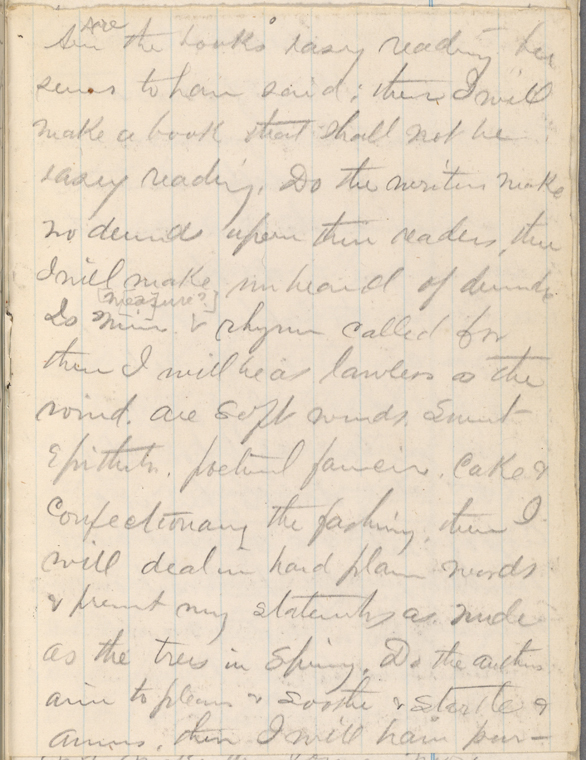 Are
the books easy reading he
seems to have said; then I will
make a book that shall not be
easey reading. Do the writers make
no demands upon their readers, then
I will make unheard of demands
[measure?]
Is & rhyme called for
then I will be as lawless as the
wind. are Soft words. Sweet
Epithets. poetical fancies. Cake &
Confectionary the fashion, then I
will deal in hard plain words
& present my statements as nude
as the trees in Spring. Do the authors
aim to please & Soothe & startle &
amuse, then I will have pur-